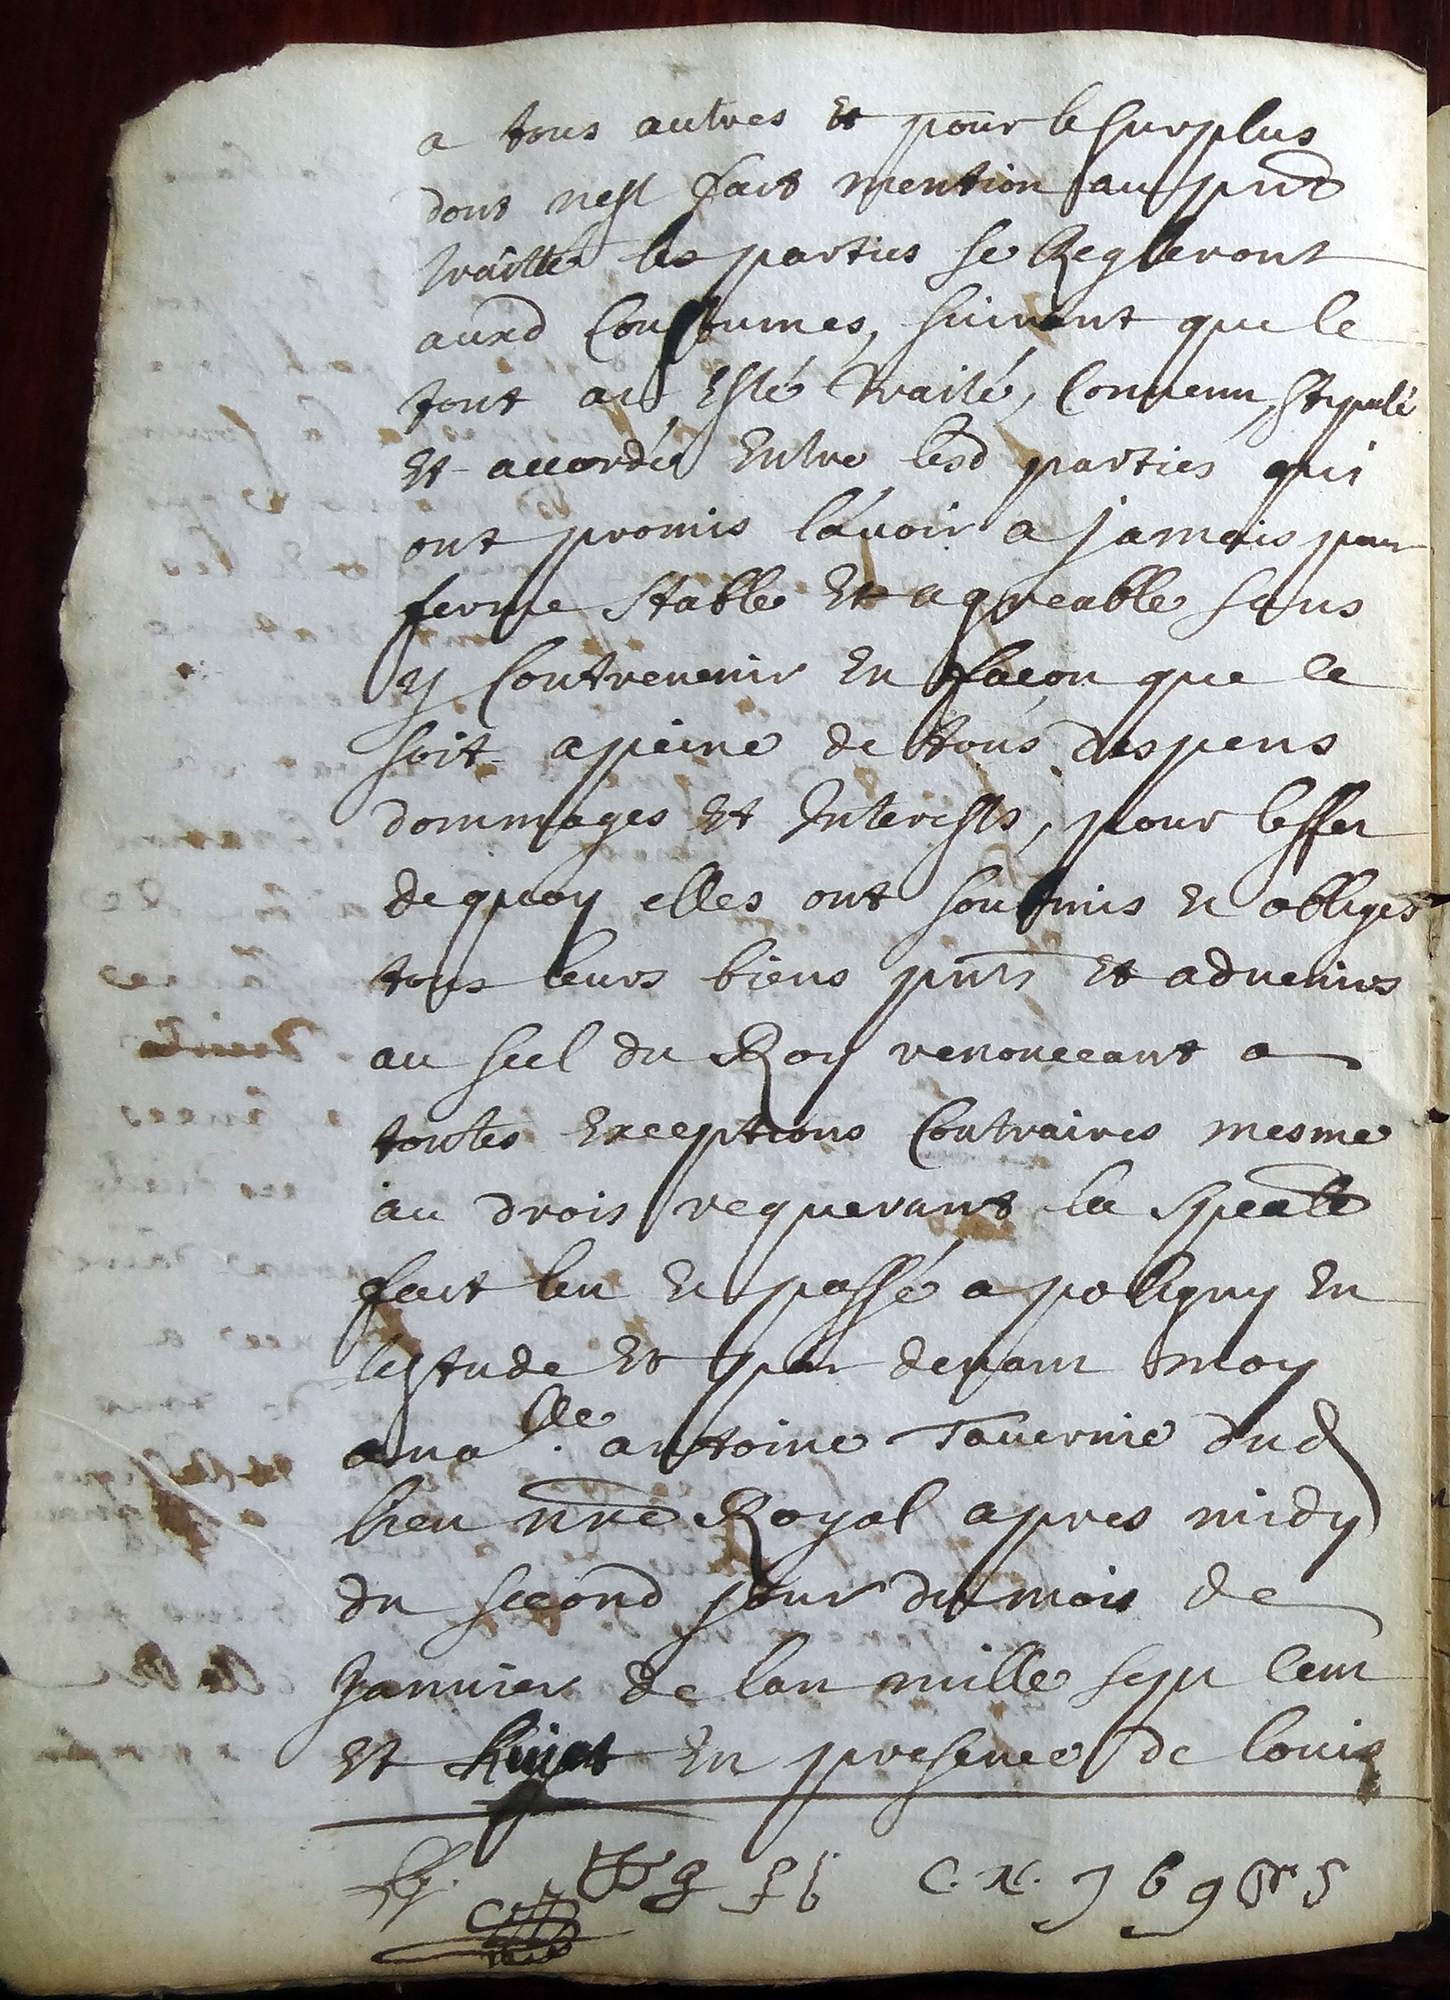 a tous autres Et pour le surplus
dont nest fait mention au pnt
traitte les parties se Regleront
ausd Coustumes, suivant que le
tout at Esté traité, Convenu, stipulé
Et accordé Entre lesd parties qui
ont promis l'avoir a jamais pour
ferme stable Et agreable sans
y Contrevenir En façon que ce
soit a peine de tous despens
dommages Et Interests, pour leffet
de quoy elles ont soubmis et obligés
tous leurs biens pnts Et advenirs
au scel du Roy renonceant a
toutes Exceptions Contraires mesme
au droit requerant la spealte
fait leu Et passé a poligny En
lestude Et par devant moy
ana lle antoine Tavernie dud
lieu nre Royal apres midy
du second jour du mois de
Janvier de lan mille sept Cent
Et huict En presence de louis
C. N.